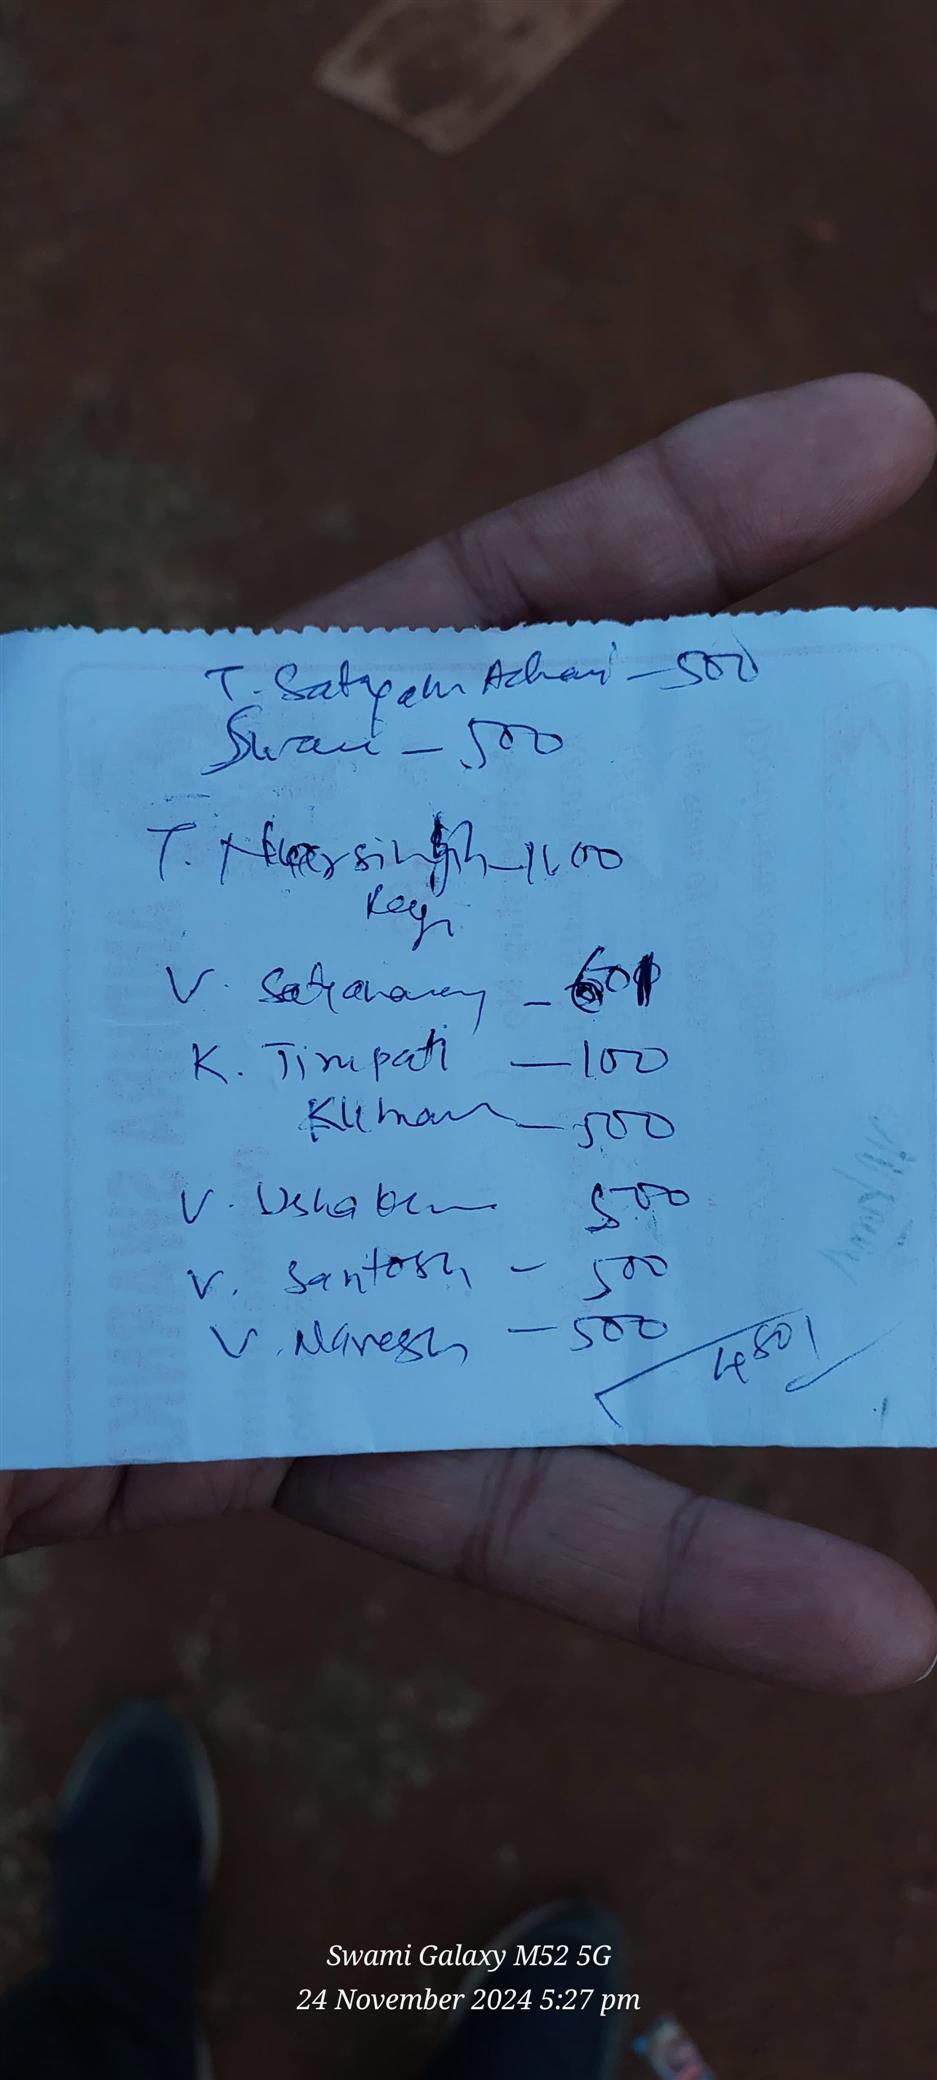 T. Satyam Achari - 500
Swami - 500
T. Narsingh - 1100
V. Satyanarayan - 601
K. Tirupati - 100
Kumar - 500
V. Ushaben 500
V. Santosh - 500
V. Naresh - 500
4801
Swami Galaxy M52 5G
24 November 2024 5:27 pm